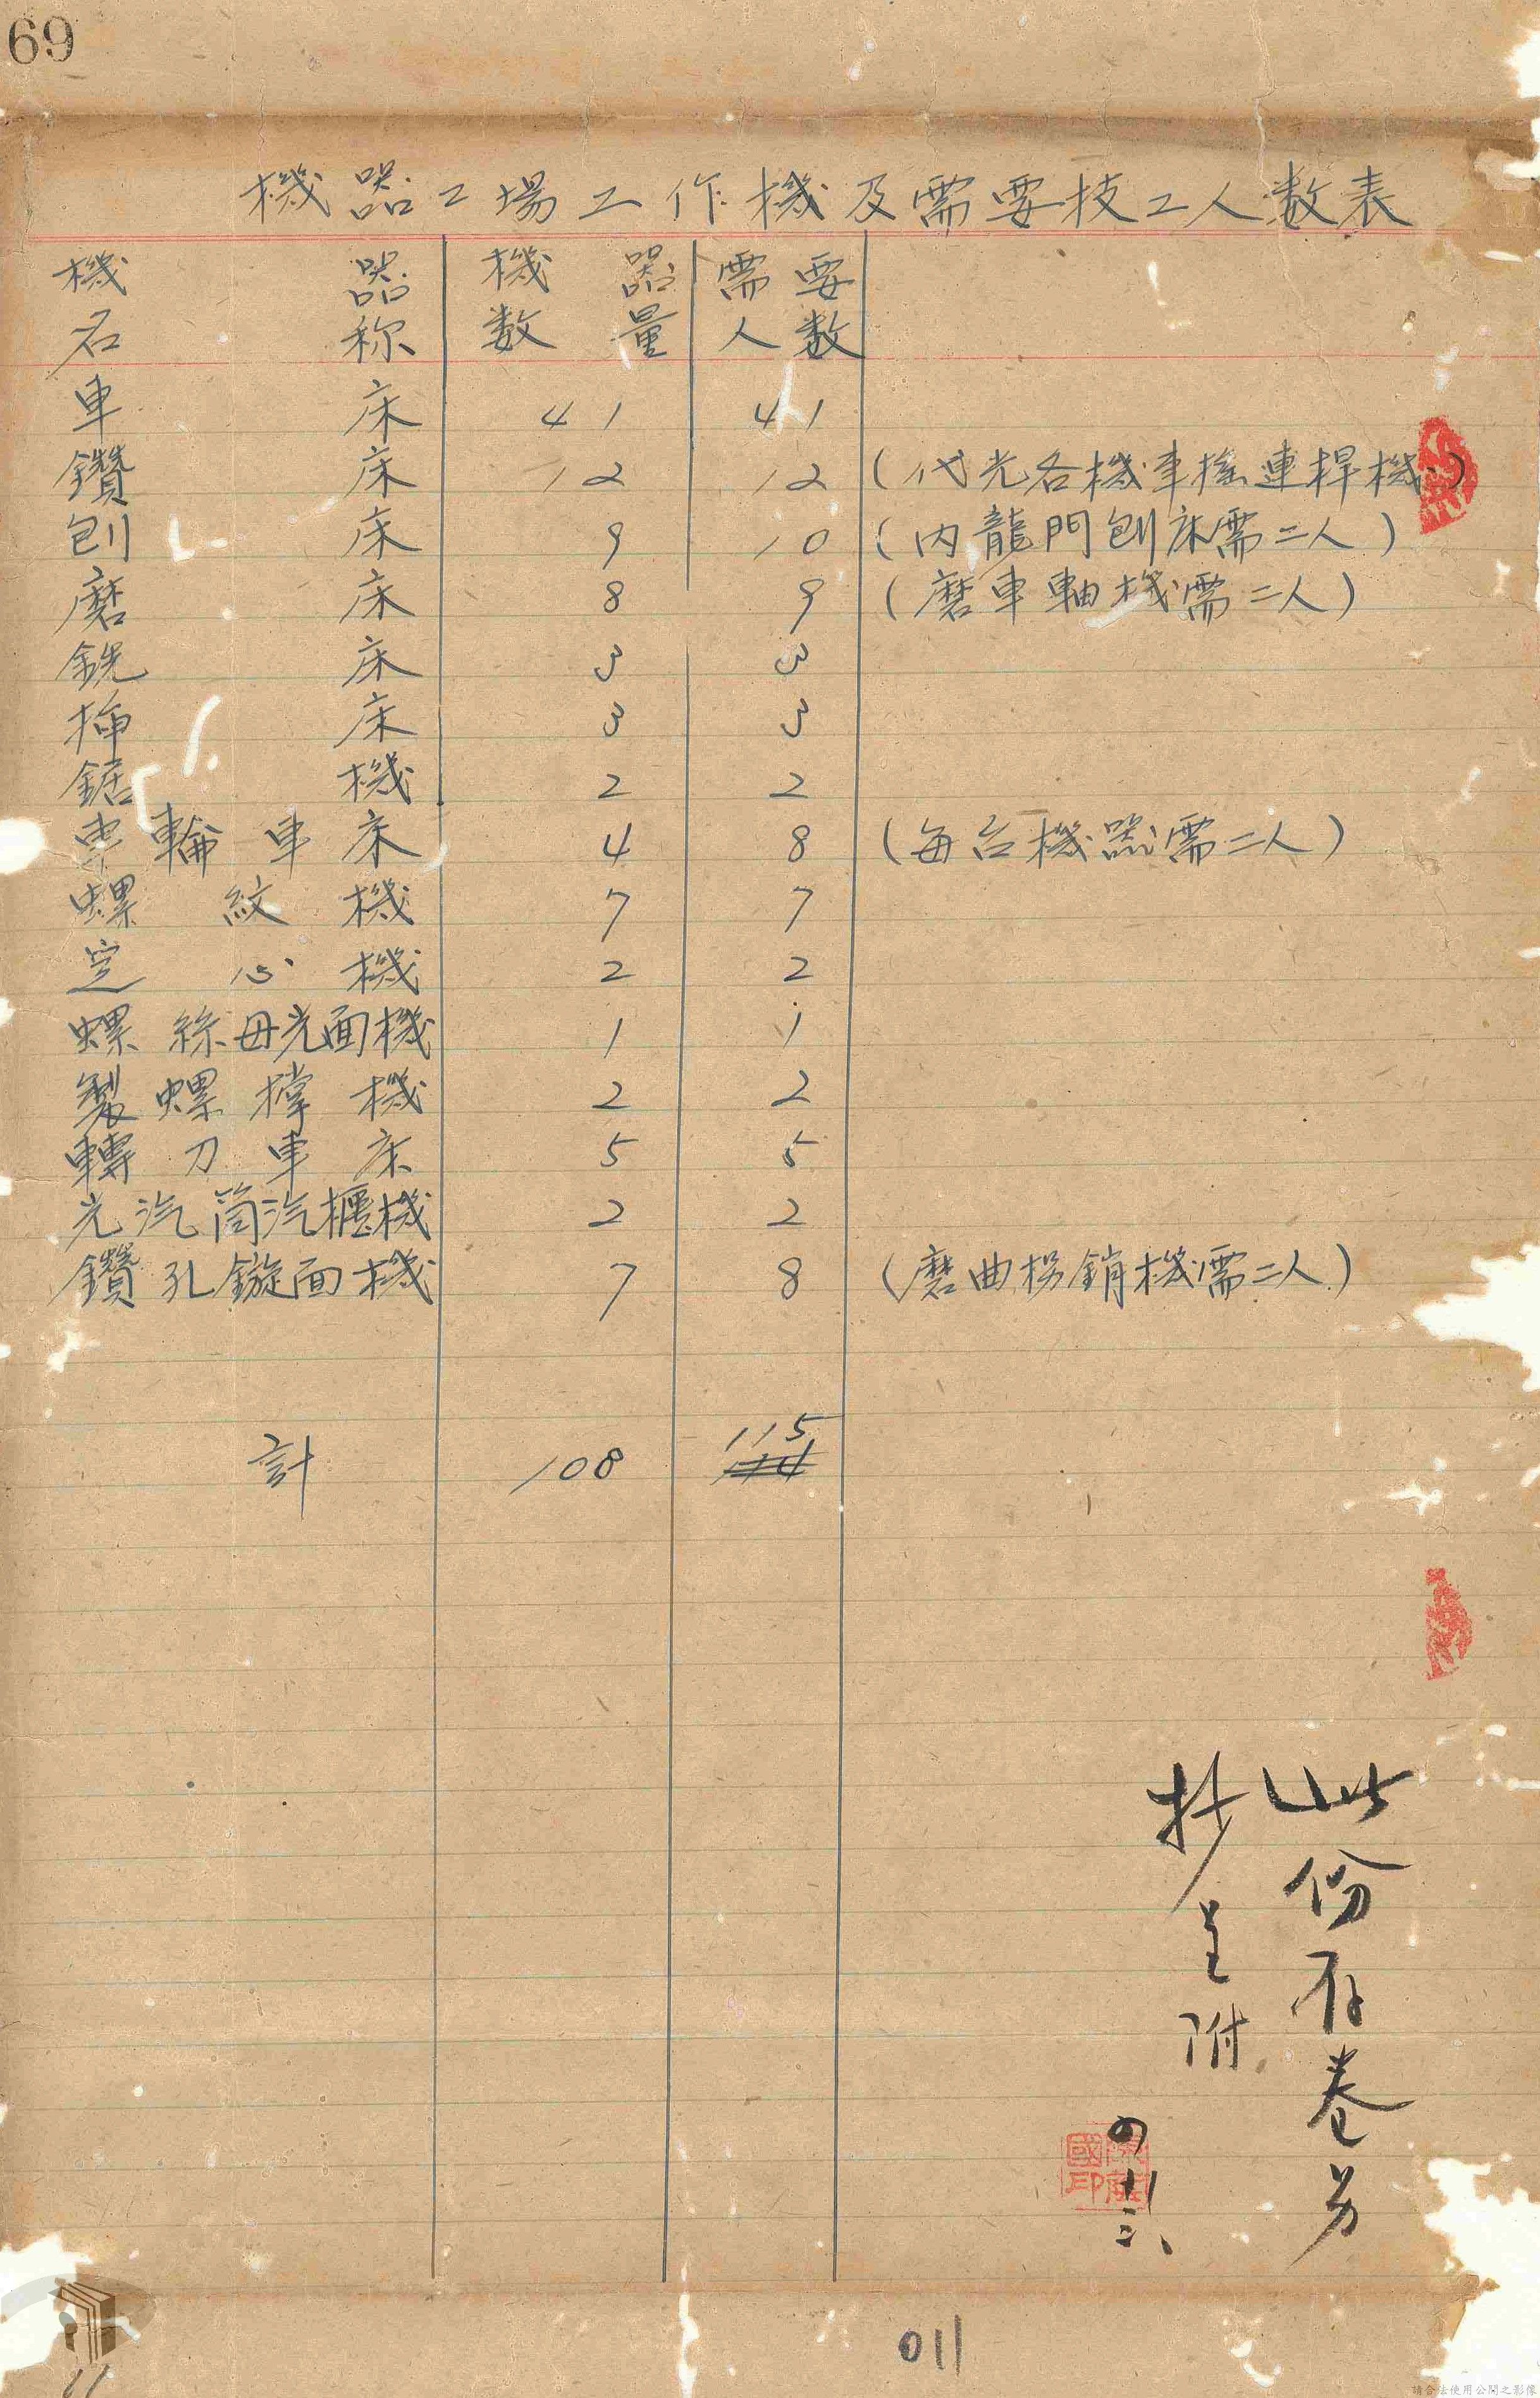 69
機器工場工作機及需要技工人数表
機器名称 機器数量 需要人数
車床 41 41
鑽床 12 12 (代光各機車搖連桿機)
刨床 9 10 (內龍門刨床需二人)
磨床 8 9 (磨車軸機需二人)
銑床 3 3
插床 3 3
鋸機 2 2
車輪車床 4 8 (每台機器需二人)
螺紋機 7 7
定心機 2 2
螺絲母光面機 1 1
製螺撐機 2 2
轉刀車床 5 5
光汽筒汽櫃機 2 2
鑽孔鏇面機 7 8 (磨曲拐銷機需二人)
計 108 115
此份存卷另
抄呈附
國印
011
11
請合法使用公開之影像